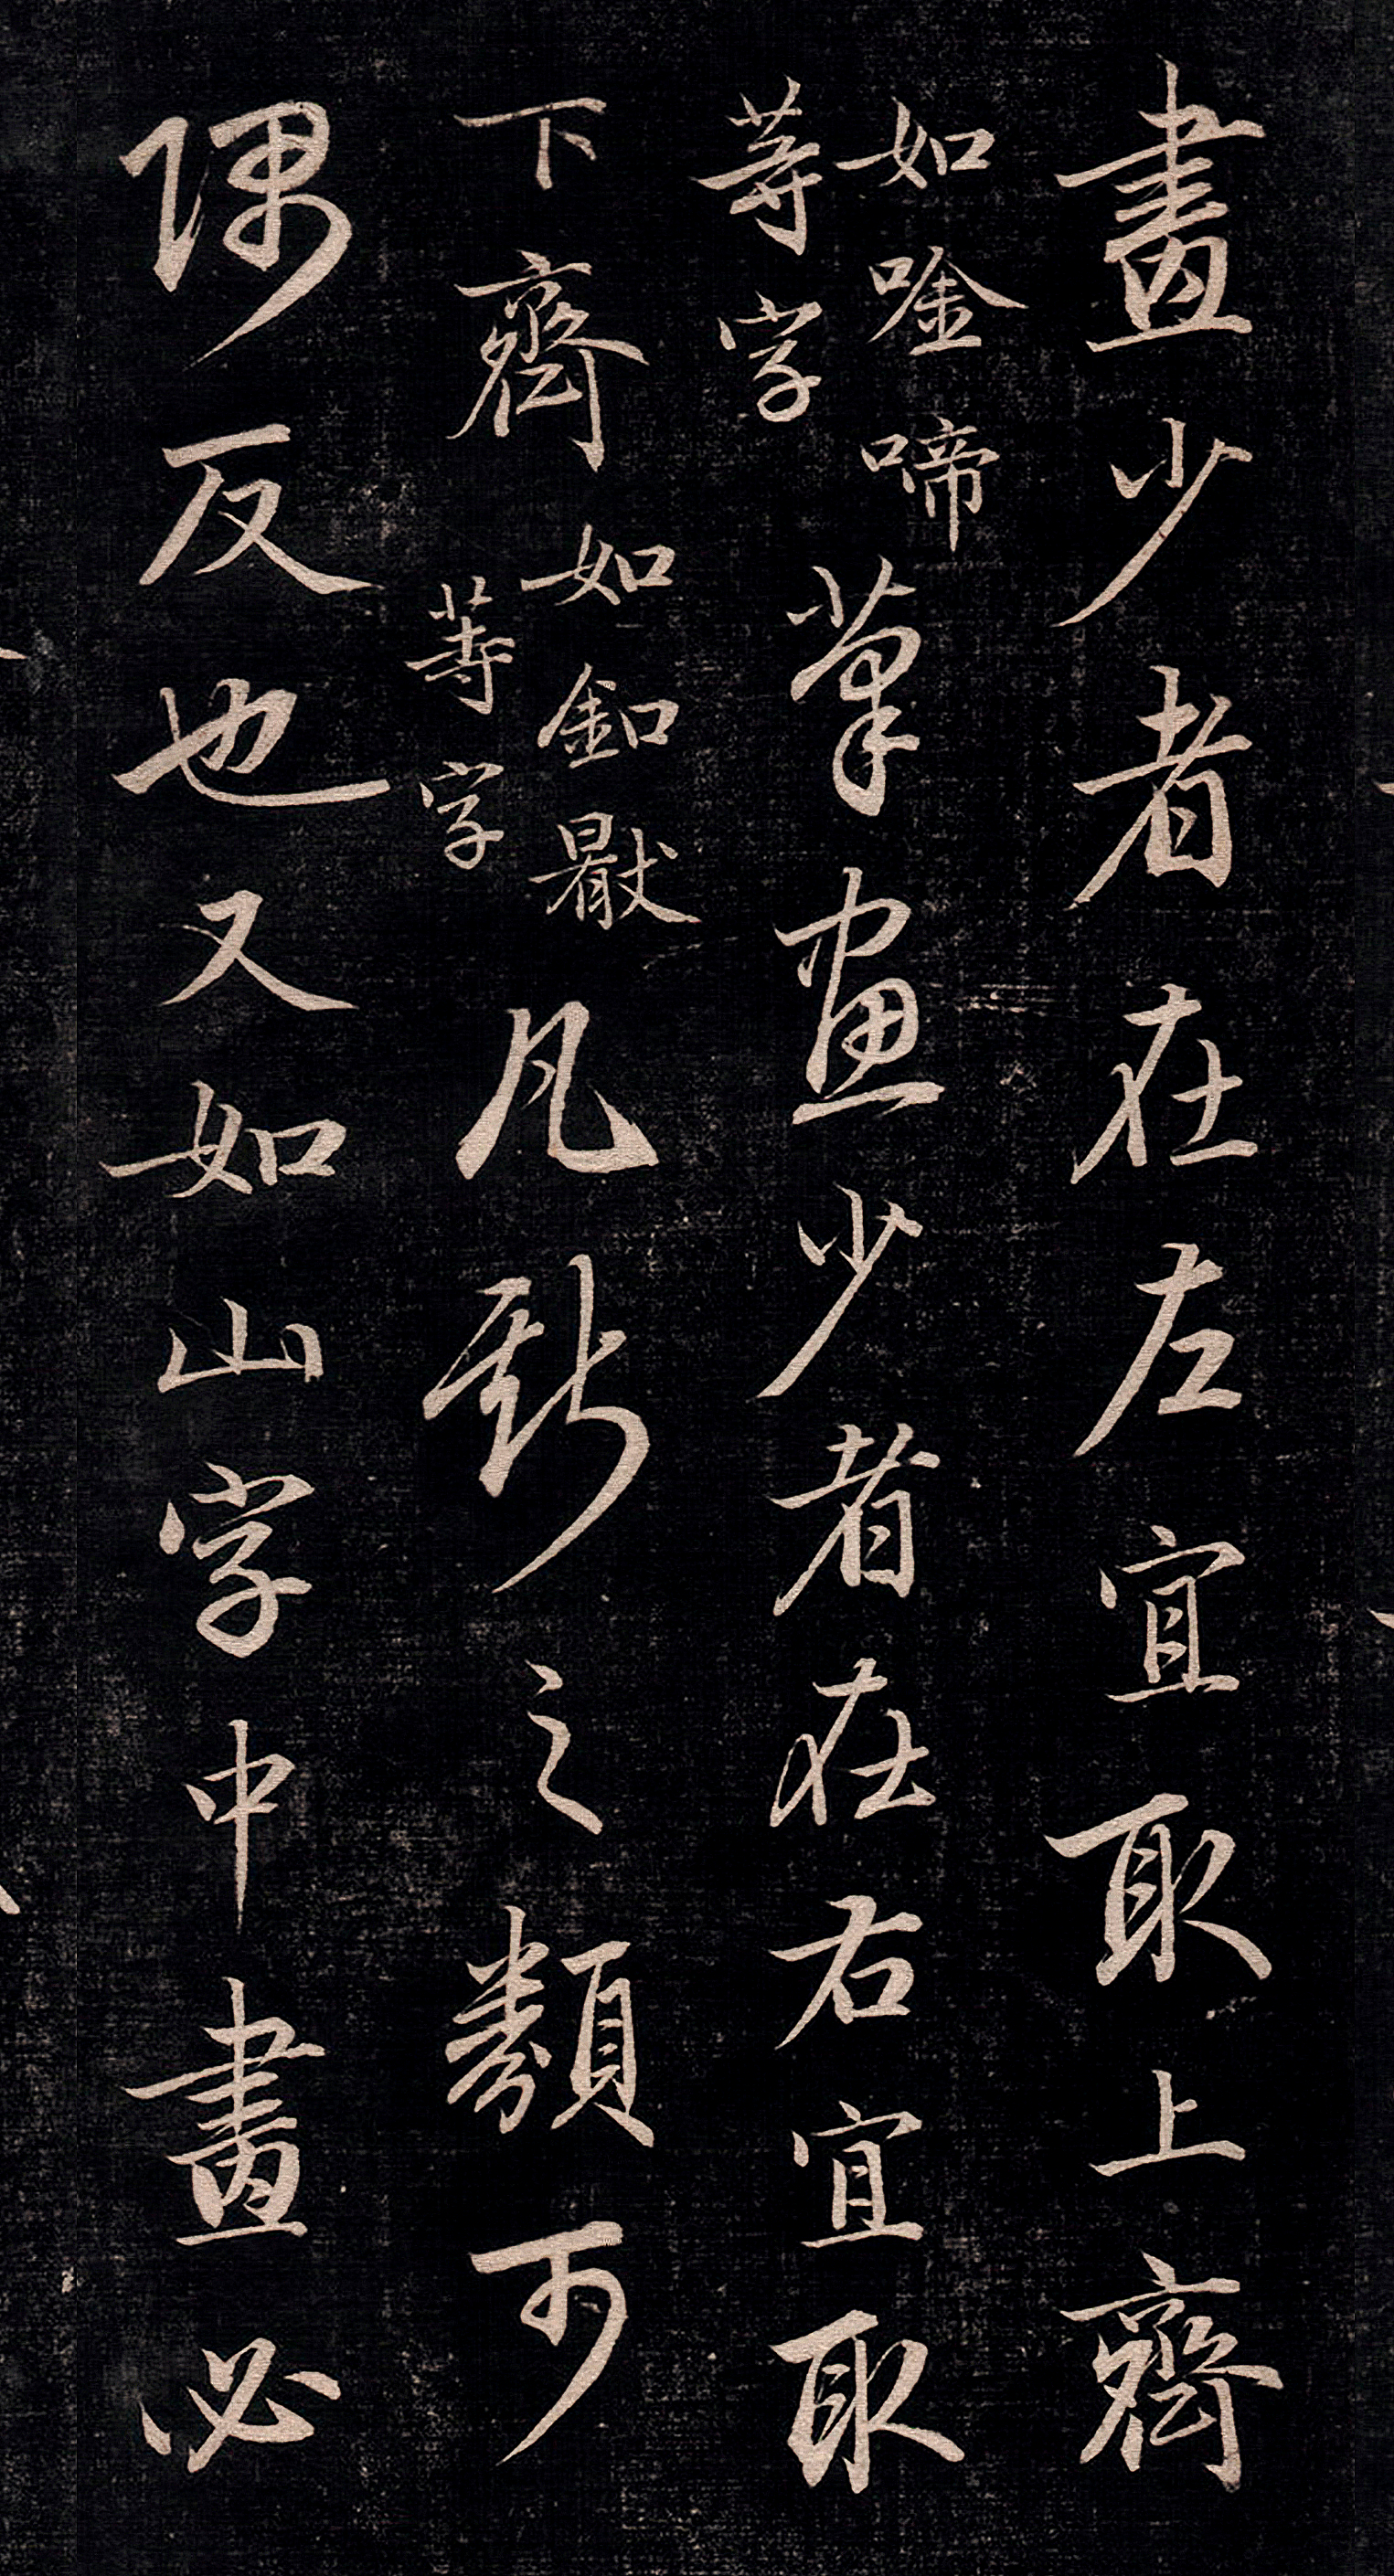 畫少者在左宜取上齊
如唫啼等字筆畫少者在右宜取
下齊如釦猒等字凡斯之類可
隅反也又如山字中畫必